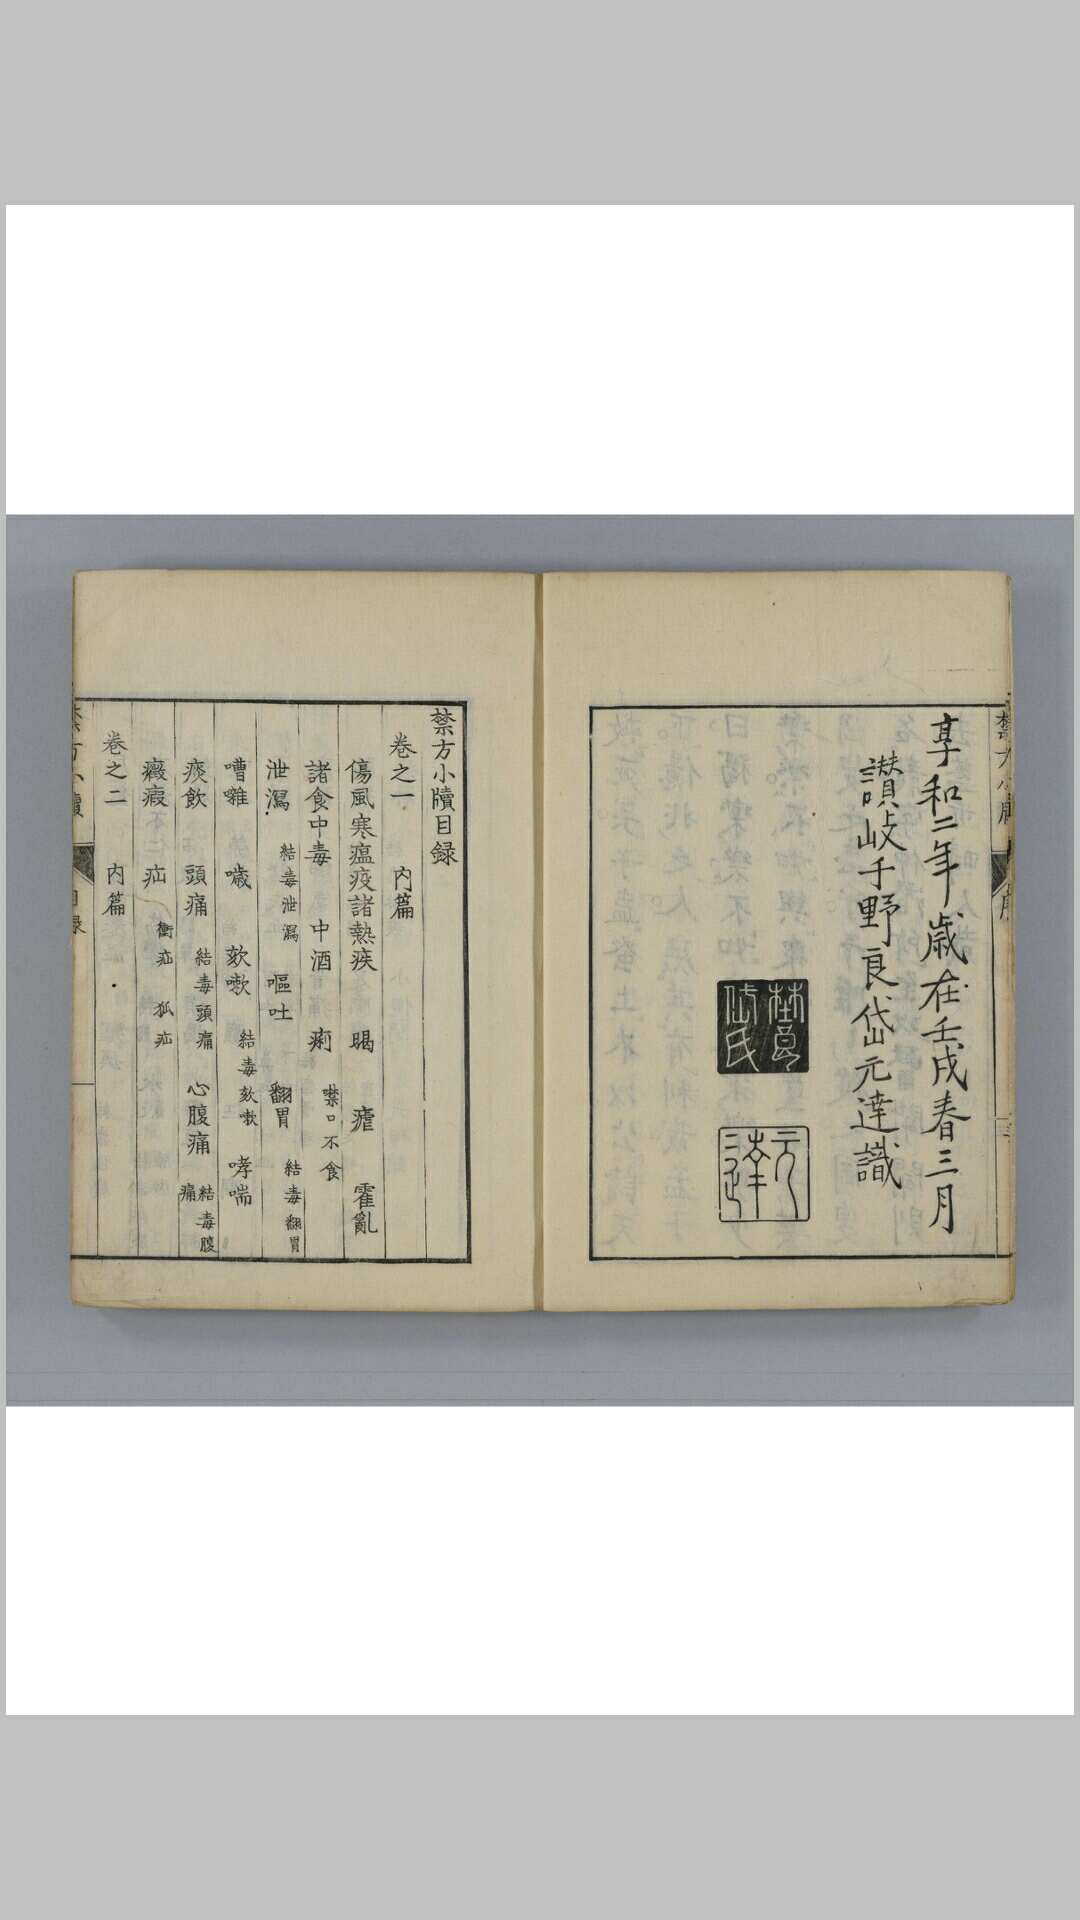 享和二年歳在壬戌春三月
讃岐千野良岱元達識
岱氏
元達
禁方小牘目録
卷之一 内篇
傷風寒瘟疫諸熱疾 暍 瘧 霍亂
諸食中毒 中酒 痢 噤口不食
泄瀉 結毒泄瀉 嘔吐 翻胃 結毒翻胃
嘈雜 噦 欬嗽 結毒欬嗽 哮喘
痰飲 頭痛 結毒頭痛 心腹痛 結毒腹痛
癥瘕 疝 衝疝 狐疝
卷之二 内篇
禁方小牘 目録